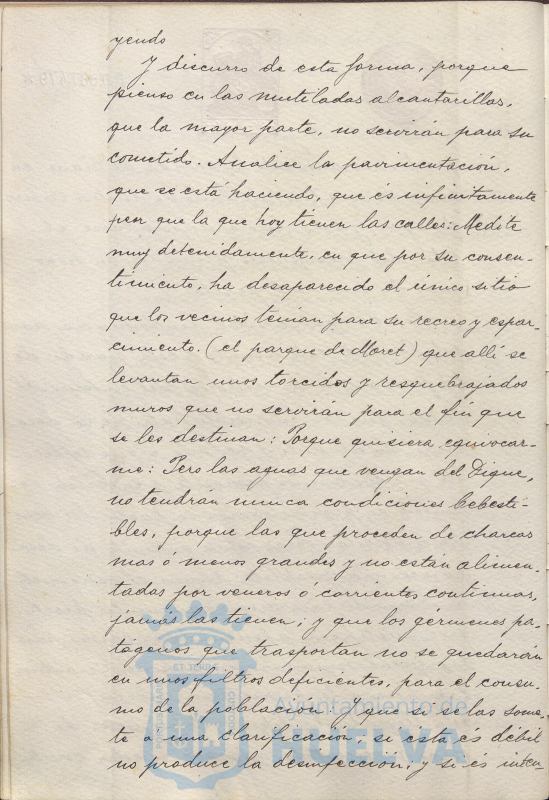 yendo
Y discurro de esta forma, porque
pienso en las mutiladas alcantarillas,
que la mayor parte, no servirán para su
cometido. Analice la pavimentación,
que se está haciendo, que és infinitamente
peor que la que hoy tienen las calles: Medite
muy detenidamente, en que por su consen-
timiento, ha desaparecido el único sitio
que los vecinos tenian para su recreo y espar-
cimiento. (el parque de Moret) que allí se
levantan unos torcidos y resquebrajados
muros que no servirán para el fin que
se les destinan: Porque quisiera equivocar-
me: Pero las aguas que vengan del Dique,
no tendrán nunca condiciones bebesti-
bles, porque las que proceden de charcas
mas ó menos grandes y no están alimen-
tadas por veneros ó corrientes continuas,
jamás las tienen; y que los gérmenes pa-
tógenos que trasportan no se quedarán
en unos filtros deficientes, para el consu-
mo de la población. Y que si se las some-
te á una clarificación, si esta és débil
no produce la desinfección; y si és inten-
Ayuntamiento de
HUELVA